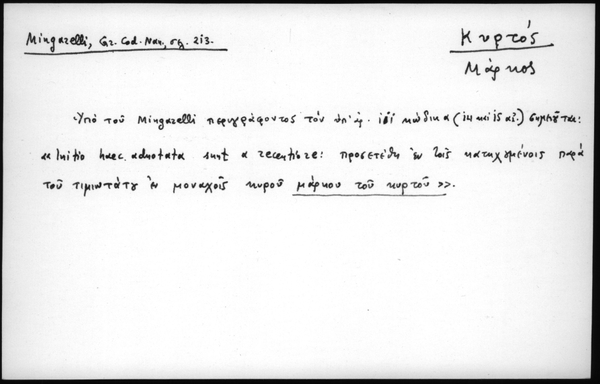 Mingarelli, Gr. Cod. Nan., σελ. 213.
Κυρτός
Μάρκος
Ὑπὸ τοῦ Mingarelli περιγράφοντος τὸν ὑπ' ἀρ. κώδικα (ιε καὶ ις αἰ.) σημειοῦται:
"Initio haec adnotata sunt a recentiore: προσετέθη ἐν τοῖς κατηχουμένοις παρὰ
τοῦ τιμιωτάτου ἐν μοναχοῖς κυροῦ μάρκου τοῦ κυρτοῦ».